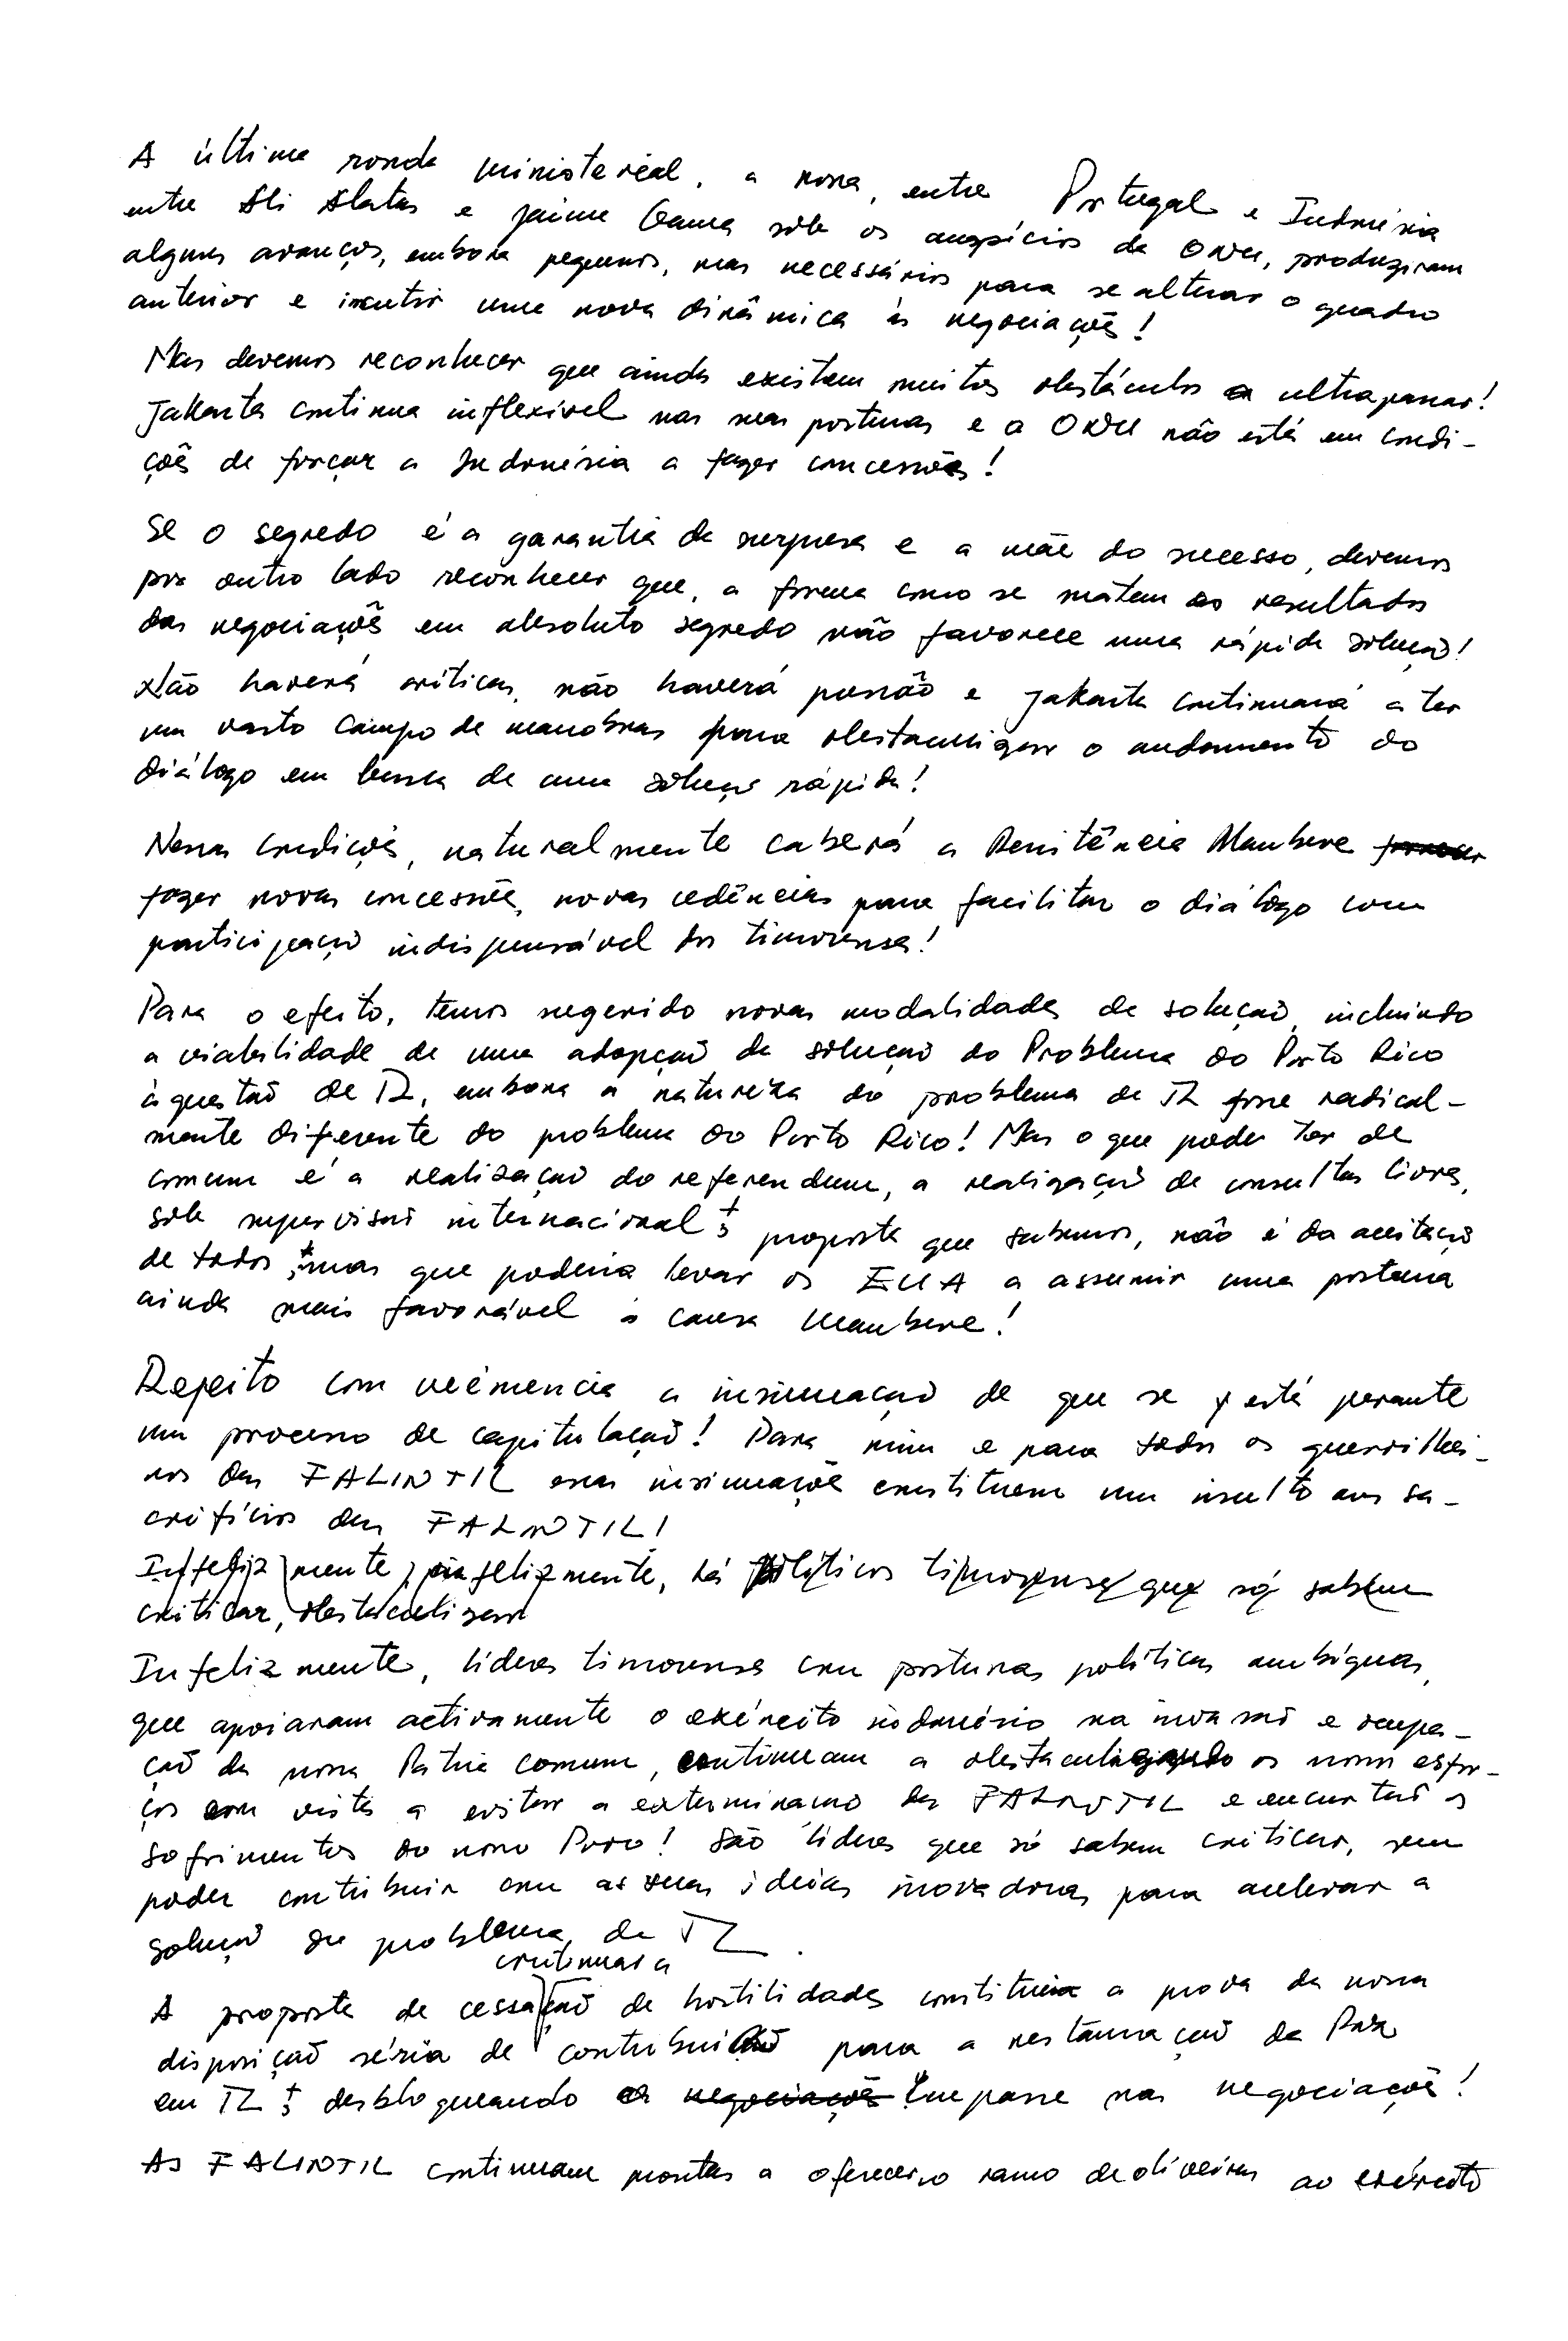 A última ronda ministereal, a nona, entre Portugal e Indonésia
entre Ali Alatas e Jaime Gama sob os auspícios da ONU, produziram
alguns avanços, embora pequenos, mas necessários para se alterar o quadro
anterior e incutir uma nova dinâmica às negociações!
Mas devemos reconhecer que ainda existem muitos obstáculos a ultrapassar!
Jakarta continua inflexível nas suas posturas e a ONU não está em condi-
ções de forçar a Indonésia a fazer concessões!
Se o segredo é a garantia da surpresa e a mãe do sucesso, devemos
por outro lado reconhecer que, a forma como se matem os resultados
das negociações em absoluto segredo não favorece uma rápida solução!
Não haverá críticas, não haverá pressão e Jakarta continuará a ter
um vasto campo de manobras para obstaculizar o andamento do
diálogo em busca de uma solução rápida!
Nessas condições, naturalmente caberá a Resistência Maubere
fazer novas concessões, novas cedências para facilitar o diálogo com
participação indispensável dos timorenses!
Para o efeito, temos sugerido novas modalidades de solução, incluindo
a viabilidade de uma adopção da solução do Problema do Porto Rico
à questão de TL, embora a natureza do problema de TL fosse radical-
mente diferente do problema do Porto Rico! Mas o que poder ter de
comum é a realização do referendum, a realização de consultas livres,
sob supervisão internacional; proposta que sabemos, não é da aceitação
de todos; mas que poderia levar os EUA a assumir uma postura
ainda mais favorável à causa Maubere!
Rejeito com veémencia a insinuação de que se está perante
um processo de capitulação! Para mim e para todos os guerrilhei-
ros das FALINTIL essas insinuações constituem um insulto aos sa-
crifícios das FALINTIL!
Infelizmente, infelizmente, há políticos timorenses que só sabem
criticar, obstaculizam
Infelizmente, líderes timorenses com posturas políticas ambíguas,
que apoiaram activamente o exército indonésio na invasão e ocupa-
ção da nossa Pátria comum, continuam a obstaculizando os nossos esfor-
ços com vista a evitar a exterminação das FALINTIL e encurtar os
sofrimentos do nosso Povo! São líderes que só sabem criticar, sem
poder contribuir com as suas ideias inovadoras para acelerar a
solução do problema de TL.
continuar a
A proposta de cessação de hostilidades constituia a prova da nossa
disposição séria de contribuição para a restauração da Paz
em TL; desbloqueando o negociações impasse nas negociações!
As FALINTIL continuam prontas a oferecer o ramo de oliveiras ao exército